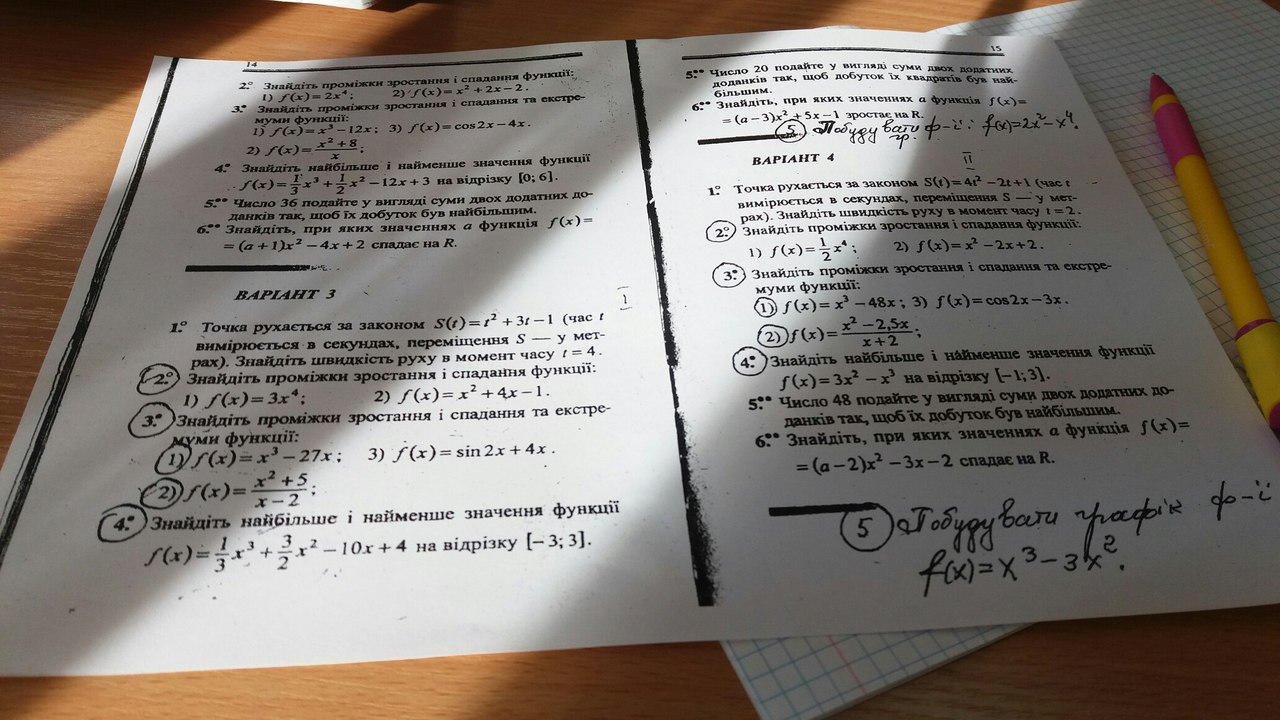 14
2.° Знайдіть проміжки зростання і спадання функції:
1) f(x) = 2x⁴; 2) f(x) = x² + 2x − 2.
3.° Знайдіть проміжки зростання і спадання та екстре-
муми функції:
1) f(x) = x³ − 12x; 3) f(x) = cos2x − 4x.
2) f(x) = (x² + 8)/x;
4.° Знайдіть найбільше і найменше значення функції
f(x) = 1/3 x³ + 1/2 x² − 12x + 3 на відрізку [0; 6].
5.•• Число 36 подайте у вигляді суми двох додатних до-
данків так, щоб їх добуток був найбільшим.
6.•• Знайдіть, при яких значеннях a функція f(x) =
= (a + 1)x² − 4x + 2 спадає на R.
ВАРІАНТ 3
I
1.° Точка рухається за законом S(t) = t² + 3t − 1 (час t
вимірюється в секундах, переміщення S — у мет-
рах). Знайдіть швидкість руху в момент часу t = 4.
2.° Знайдіть проміжки зростання і спадання функції:
1) f(x) = 3x⁴; 2) f(x) = x² + 4x − 1.
3.° Знайдіть проміжки зростання і спадання та екстре-
муми функції:
1) f(x) = x³ − 27x; 3) f(x) = sin2x + 4x.
2) f(x) = (x² + 5)/(x − 2);
4.° Знайдіть найбільше і найменше значення функції
f(x) = 1/3 x³ + 3/2 x² − 10x + 4 на відрізку [−3; 3].
15
5.•• Число 20 подайте у вигляді суми двох додатних
доданків так, щоб добуток їх квадратів був най-
більшим.
6.•• Знайдіть, при яких значеннях a функція f(x) =
= (a − 3)x² + 5x − 1 зростає на R.
5 Побудувати гр. ф-ії: f(x) = 2x² − x⁴.
ВАРІАНТ 4
II
1.° Точка рухається за законом S(t) = 4t² − 2t + 1 (час t
вимірюється в секундах, переміщення S — у мет-
рах). Знайдіть швидкість руху в момент часу t = 2.
2.° Знайдіть проміжки зростання і спадання функції:
1) f(x) = 1/2 x⁴; 2) f(x) = x² − 2x + 2.
3.° Знайдіть проміжки зростання і спадання та екстре-
муми функції:
1) f(x) = x³ − 48x; 3) f(x) = cos2x − 3x.
2) f(x) = (x² − 2,5x)/(x + 2);
4.° Знайдіть найбільше і найменше значення функції
f(x) = 3x² − x³ на відрізку [−1; 3].
5.•• Число 48 подайте у вигляді суми двох додатних до-
данків так, щоб їх добуток був найбільшим.
6.•• Знайдіть, при яких значеннях a функція f(x) =
= (a − 2)x² − 3x − 2 спадає на R.
5 Побудувати графік ф-ії
f(x) = x³ − 3x².